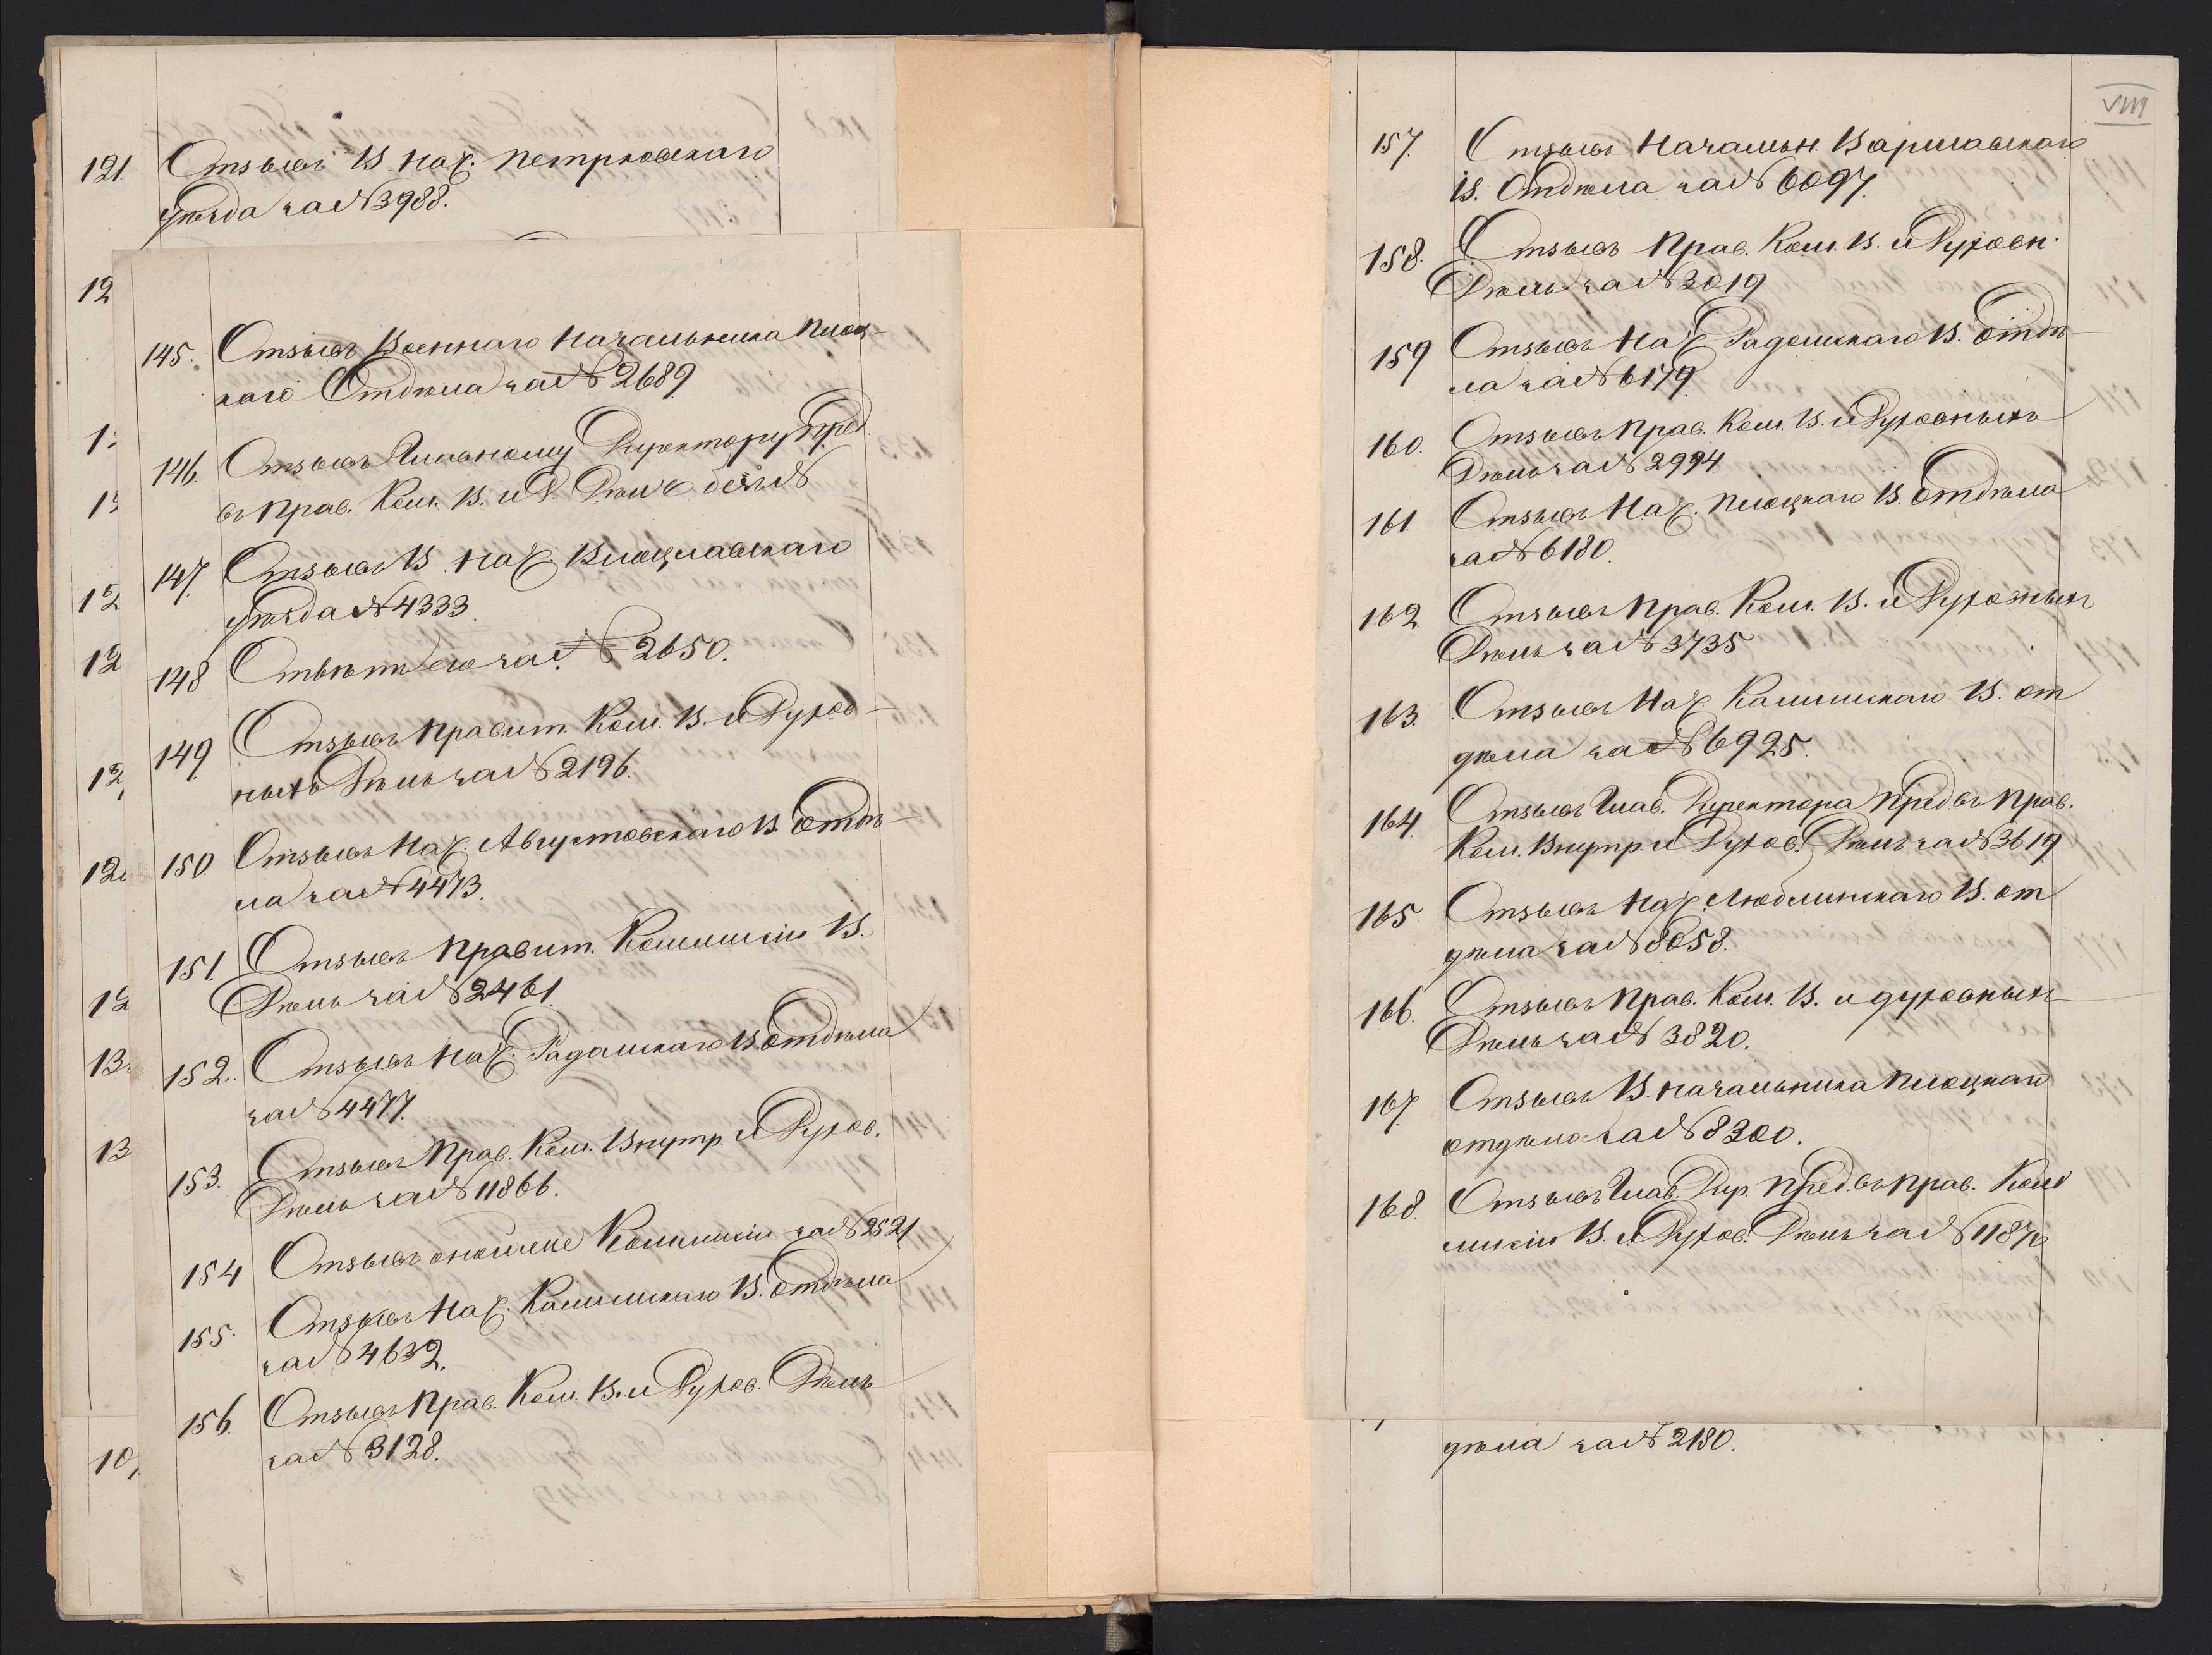 121. Отзывъ В. Нач. Петрковскаго
уѣзда за № 3988.
12
145. Отзывъ Военнаго Начальника Плоц-
каго Отдѣла за № 2689
146. Отзывъ Главному Директору Пред.
въ Прав. Ком. В. и Д. Дѣлъ безъ №
147. Отзывъ В. Нач. Влоцлавскаго
уѣзда № 4333.
148 Отвѣтъ его за № 2650.
149 Отзывъ Правит. Ком. В. и Духов-
ныхъ Дѣлъ за № 2196.
150. Отзывъ Нач. Августовскаго В. Отдѣ-
ла за № 4473.
151. Отзывъ Правит. Коммисіи В.
Дѣлъ за № 2461
152. Отзывъ Нач. Радомскаго В. Отдѣла
за № 4477.
153. Отзывъ Прав. Ком. Внутр. и Духов.
Дѣлъ за № 11866.
154 Отзывъ оной же Коммисіи за № 2521
155. Отзывъ Нач. Калишскаго В. Отдѣла
за № 4632.
156. Отзывъ Прав. Ком. В. и Духов. Дѣлъ
за № 3128.
12
12
12
13
10
VIII
157. Отзывъ Начальн. Варшавскаго
В. Отдѣла за № 6097.
158. Отзывъ Прав. Ком. В. и Духовн.
Дѣлъ за № 3019
159 Отзывъ Нач. Радомскаго В. Отдѣ-
ла за № 6179
160. Отзывъ Прав. Ком. В. и Духовныхъ
Дѣлъ за № 2994.
161. Отзывъ Нач. Плоцкаго В. Отдѣла
за № 6180.
162. Отзывъ Прав. Ком. В. и Духовныхъ
Дѣлъ за № 3735
163. Отзывъ Нач. Калишскаго В. от
дѣла за № 6925.
164. Отзывъ Глав. Директора Пред. въ Прав.
Ком. Внутр. и Духов. Дѣлъ за № 3619
165. Отзывъ Нач. Люблинскаго В. от
дѣла за № 8058.
166. Отзывъ Прав. Ком. В. и духовныхъ
Дѣлъ за № 3820.
167. Отзывъ В. Начальника Плоцкаго
отдѣла за № 8300.
168. Отзывъ Глав. Дир. Пред. въ Прав. Ком
мисіи В. и Духов. Дѣлъ за № 1187
дѣла за № 2180.